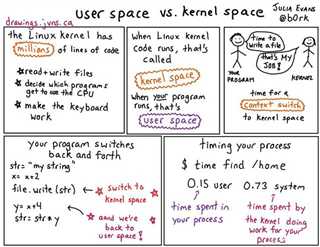 user space vs. kernel space
JULIA EVANS
@b0rk
drawings.jvns.ca
the Linux kernel has
millions
of lines of code
★ read+write files
★ decide which programs
get to use the CPU
★ make the keyboard
work
when Linux kernel
code runs, that's
called
kernel space
when your program
runs, that's
user space
time to
write a file
that's MY
JOB!
YOUR
PROGRAM
KERNEL
time for a
context switch
to kernel space
your program switches
back and forth
str= "my string"
x= x+2
file.write(str)
★ switch to
kernel space
y= x+4
str= str*y
★ and we're
back to
user space!
timing your process
$ time find /home
0.15 user
0.73 system
time spent in
your process
time spent by
the kernel doing
work for your
process